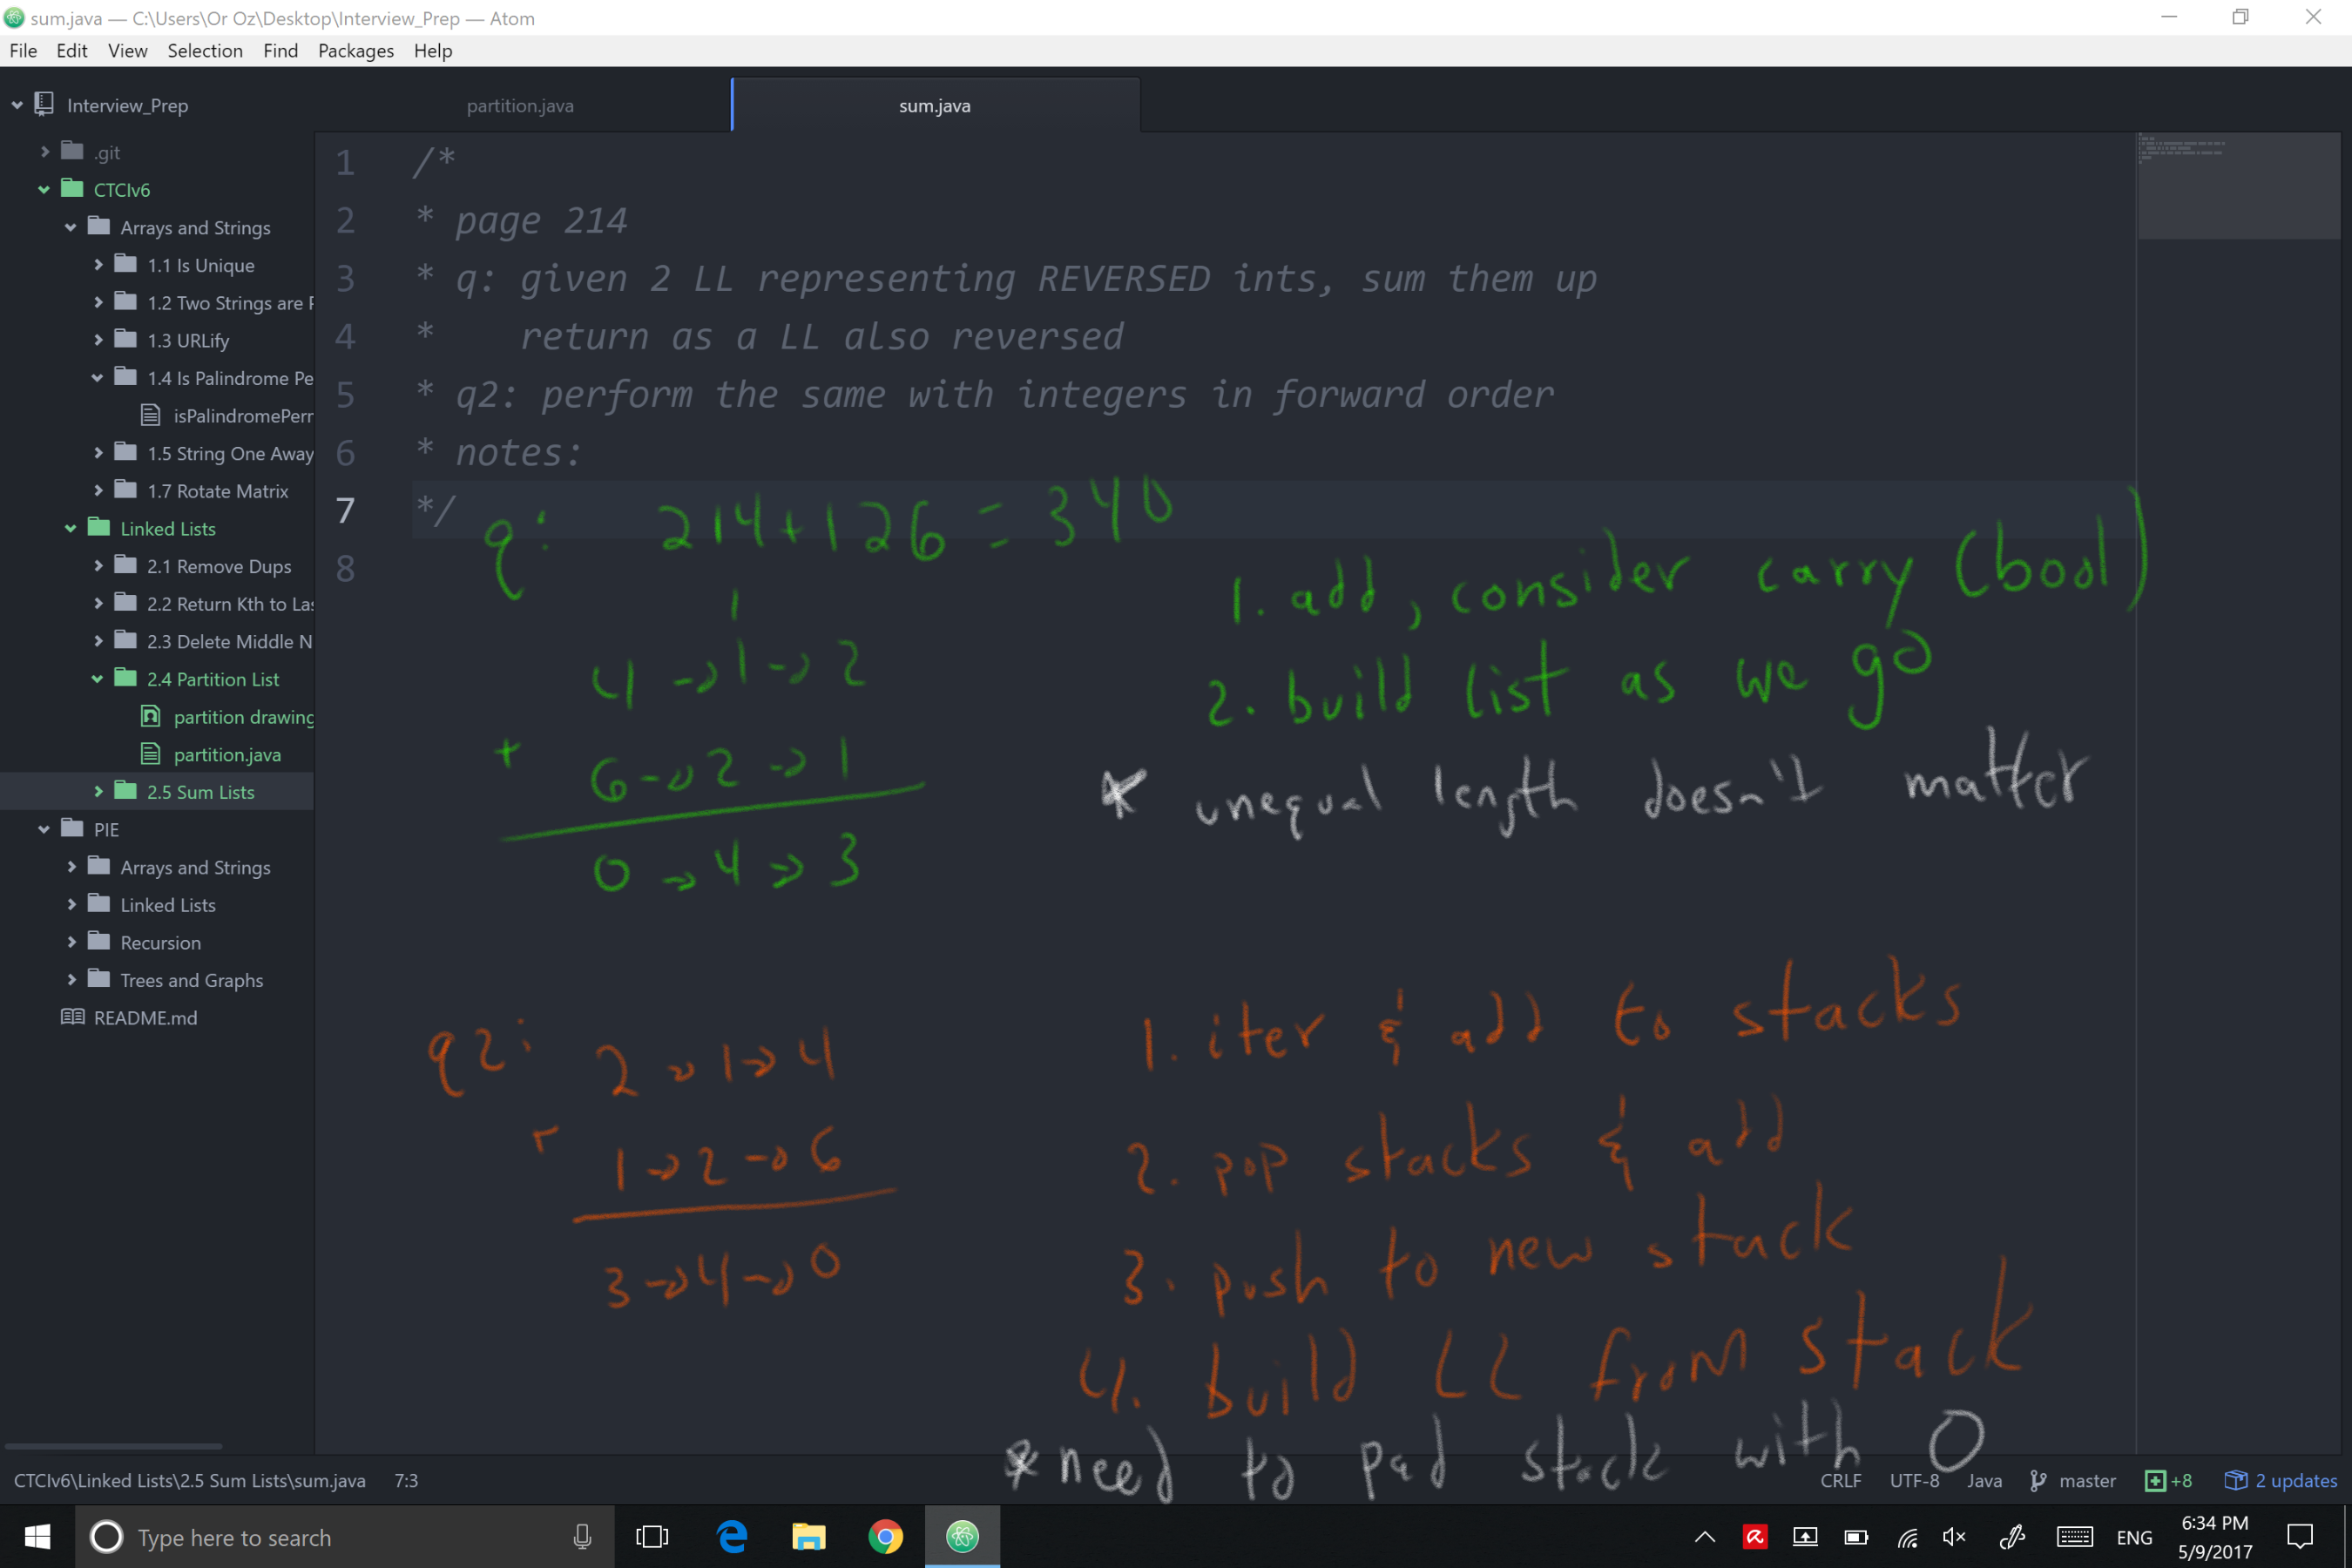 sum.java — C:\Users\Or Oz\Desktop\Interview_Prep — Atom
File Edit View Selection Find Packages Help
Interview_Prep
.git
CTCIv6
Arrays and Strings
1.1 Is Unique
1.2 Two Strings are P
1.3 URLify
1.4 Is Palindrome Pe
isPalindromePerr
1.5 String One Away
1.7 Rotate Matrix
Linked Lists
2.1 Remove Dups
2.2 Return Kth to Las
2.3 Delete Middle N
2.4 Partition List
partition drawing
partition.java
2.5 Sum Lists
PIE
Arrays and Strings
Linked Lists
Recursion
Trees and Graphs
README.md
partition.java sum.java
1 /*
2 * page 214
3 * q: given 2 LL representing REVERSED ints, sum them up
4 * return as a LL also reversed
5 * q2: perform the same with integers in forward order
6 * notes:
7 */
8
q: 214+126 = 340
1
4 → 1 → 2
+ 6 → 2 → 1
0 → 4 → 3
1. add, consider carry (bool)
2. build list as we go
* unequal length doesn't matter
q2: 2 → 1 → 4
1 → 2 → 6
3 → 4 → 0
1. iter & add to stacks
2. pop stacks & add
3. push to new stack
4. build LL from stack
* need to pad stack with 0
CTCIv6\Linked Lists\2.5 Sum Lists\sum.java 7:3 CRLF UTF-8 Java master +8 2 updates
Type here to search ENG 6:34 PM
5/9/2017